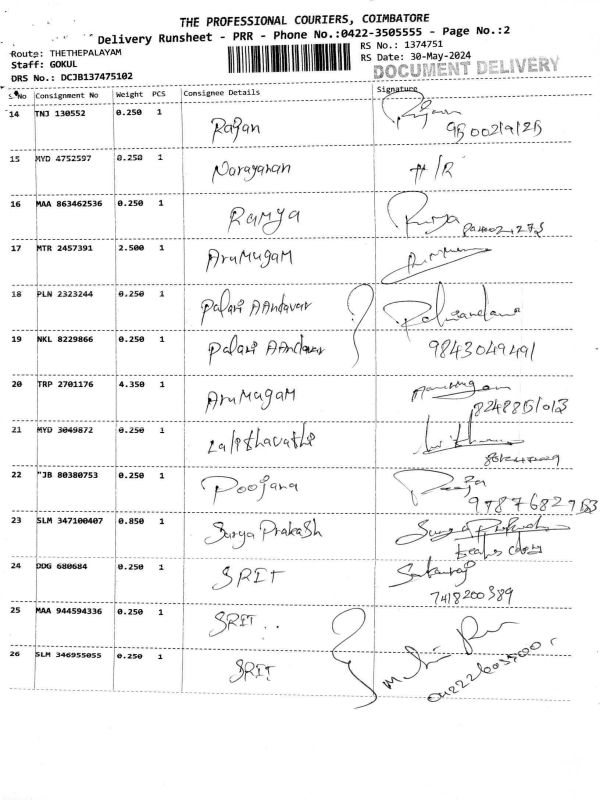 THE PROFESSIONAL COURIERS, COIMBATORE
Delivery Runsheet - PRR - Phone No.:0422-3505555 - Page No.:2
Route: THETHEPALAYAM
RS No.: 1374751
Staff: GOKUL
RS Date: 30-May-2024
DRS No.: DCJB137475102
DOCUMENT DELIVERY
S.No Consignment No Weight PCS Consignee Details Signature
14 TNJ 130552 0.250 1 Rajan
15 MYD 4752597 0.250 1 Narayanan H/R
16 MAA 863462536 0.250 1 Ramya
17 MTR 2457391 2.500 1 Arumugam
18 PLN 2323244 0.250 1 Palani AAndavar
19 NKL 8229866 0.250 1 Palani AAndavar 9843049491
20 TRP 2701176 4.350 1 Arumugam
21 MYD 3049872 0.250 1 Lalithavathi
22 "JB 80380753 0.250 1 Poojana
23 SLM 347100407 0.850 1 Surya Prakash
24 DDG 680684 0.250 1 SRIT
7418200389
25 MAA 944594336 0.250 1 SRIT
26 SLM 346955055 0.250 1 SRIT